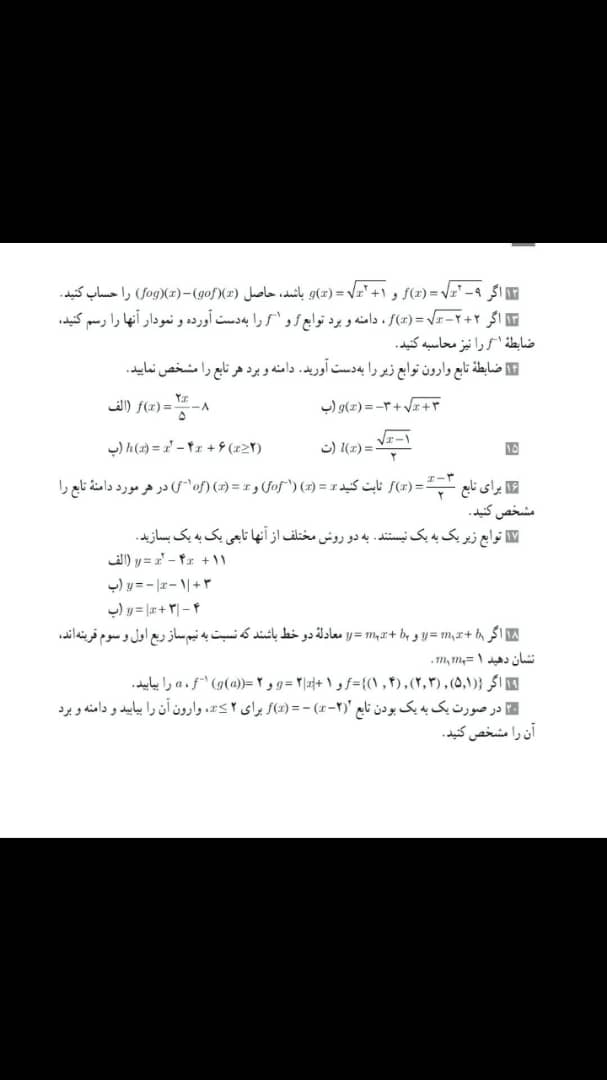 ۱۲ اگر f(x)=√(x²−۹) و g(x)=√(x²+۱) باشد، حاصل (fog)(x)−(gof)(x) را حساب کنید.
۱۳ اگر f(x)=√(x−۲)+۲، دامنه و برد توابع f و f⁻¹ را به‌دست آورده و نمودار آنها را رسم کنید،
ضابطهٔ f⁻¹ را نیز محاسبه کنید.
۱۴ ضابطهٔ تابع وارون توابع زیر را به‌دست آورید. دامنه و برد هر تابع را مشخص نمایید.
الف) f(x)=۲x/۵−۸ ب) g(x)=−۳+√(x+۳)
۱۵ پ) h(x)=x²−۴x+۶ (x≥۲) ت) l(x)=√(x−۱)/۲
۱۶ برای تابع f(x)=(x−۳)/۲ ثابت کنید (fof⁻¹)(x)=x و (f⁻¹of)(x)=x در هر مورد دامنهٔ تابع را
مشخص کنید.
۱۷ توابع زیر یک به یک نیستند. به دو روش مختلف از آنها تابعی یک به یک بسازید.
الف) y=x²−۴x+۱۱
ب) y=−|x−۱|+۳
پ) y=|x+۳|−۴
۱۸ اگر y=m₁x+b₁ و y=m₂x+b₂ معادلهٔ دو خط باشند که نسبت به نیم‌ساز ربع اول و سوم قرینه‌اند،
نشان دهید m₁m₂=۱.
۱۹ اگر f={(۱,۴),(۲,۳),(۵,۱)} و g=۲|x|+۱ و f⁻¹(g(a))=۲، a را بیابید.
۲۰ در صورت یک به یک بودن تابع f(x)=−(x−۲)² برای x≤۲، وارون آن را بیابید و دامنه و برد
آن را مشخص کنید.